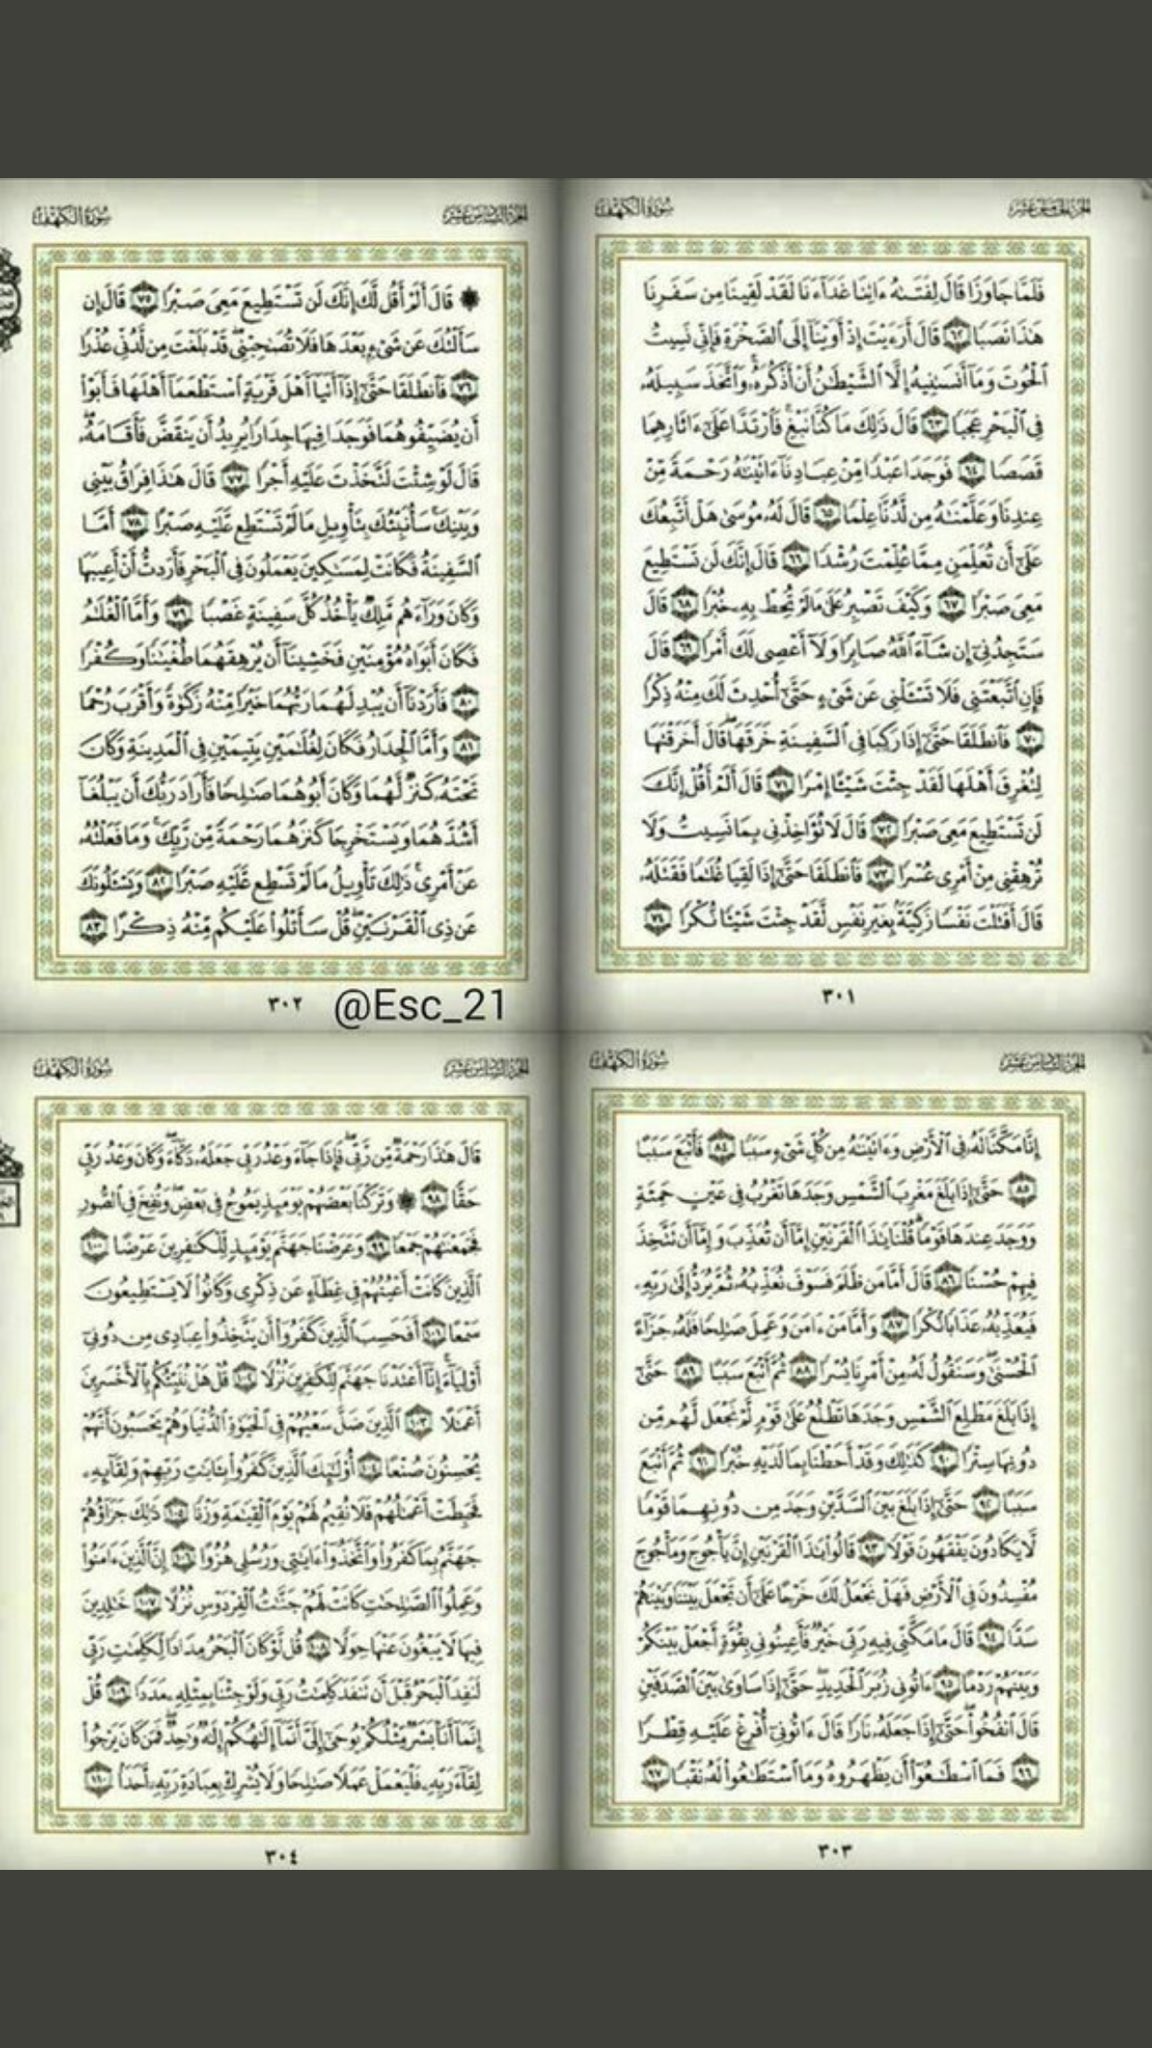 الجزء الخامس عشر
سورة الكهف
فَلَمَّا جَاوَزَا قَالَ لِفَتَىٰهُ ءَاتِنَا غَدَآءَنَا لَقَدْ لَقِينَا مِن سَفَرِنَا
هَٰذَا نَصَبًا ٦٢ قَالَ أَرَءَيْتَ إِذْ أَوَيْنَآ إِلَى ٱلصَّخْرَةِ فَإِنِّى نَسِيتُ
ٱلْحُوتَ وَمَآ أَنسَىٰنِيهُ إِلَّا ٱلشَّيْطَٰنُ أَنْ أَذْكُرَهُۥ وَٱتَّخَذَ سَبِيلَهُۥ
فِى ٱلْبَحْرِ عَجَبًا ٦٣ قَالَ ذَٰلِكَ مَا كُنَّا نَبْغِ فَٱرْتَدَّا عَلَىٰٓ ءَاثَارِهِمَا
قَصَصًا ٦٤ فَوَجَدَا عَبْدًا مِّنْ عِبَادِنَآ ءَاتَيْنَٰهُ رَحْمَةً مِّنْ
عِندِنَا وَعَلَّمْنَٰهُ مِن لَّدُنَّا عِلْمًا ٦٥ قَالَ لَهُۥ مُوسَىٰ هَلْ أَتَّبِعُكَ
عَلَىٰٓ أَن تُعَلِّمَنِ مِمَّا عُلِّمْتَ رُشْدًا ٦٦ قَالَ إِنَّكَ لَن تَسْتَطِيعَ
مَعِىَ صَبْرًا ٦٧ وَكَيْفَ تَصْبِرُ عَلَىٰ مَا لَمْ تُحِطْ بِهِۦ خُبْرًا ٦٨ قَالَ
سَتَجِدُنِىٓ إِن شَآءَ ٱللَّهُ صَابِرًا وَلَآ أَعْصِى لَكَ أَمْرًا ٦٩ قَالَ
فَإِنِ ٱتَّبَعْتَنِى فَلَا تَسْـَٔلْنِى عَن شَىْءٍ حَتَّىٰٓ أُحْدِثَ لَكَ مِنْهُ ذِكْرًا
٧٠ فَٱنطَلَقَا حَتَّىٰٓ إِذَا رَكِبَا فِى ٱلسَّفِينَةِ خَرَقَهَا قَالَ أَخَرَقْتَهَا
لِتُغْرِقَ أَهْلَهَا لَقَدْ جِئْتَ شَيْـًٔا إِمْرًا ٧١ قَالَ أَلَمْ أَقُلْ إِنَّكَ
لَن تَسْتَطِيعَ مَعِىَ صَبْرًا ٧٢ قَالَ لَا تُؤَاخِذْنِى بِمَا نَسِيتُ وَلَا
تُرْهِقْنِى مِنْ أَمْرِى عُسْرًا ٧٣ فَٱنطَلَقَا حَتَّىٰٓ إِذَا لَقِيَا غُلَٰمًا فَقَتَلَهُۥ
قَالَ أَقَتَلْتَ نَفْسًا زَكِيَّةًۢ بِغَيْرِ نَفْسٍ لَّقَدْ جِئْتَ شَيْـًٔا نُّكْرًا ٧٤
٣٠١
الجزء السادس عشر
سورة الكهف
۞ قَالَ أَلَمْ أَقُل لَّكَ إِنَّكَ لَن تَسْتَطِيعَ مَعِىَ صَبْرًا ٧٥ قَالَ إِن
سَأَلْتُكَ عَن شَىْءٍۭ بَعْدَهَا فَلَا تُصَٰحِبْنِى قَدْ بَلَغْتَ مِن لَّدُنِّى عُذْرًا
٧٦ فَٱنطَلَقَا حَتَّىٰٓ إِذَآ أَتَيَآ أَهْلَ قَرْيَةٍ ٱسْتَطْعَمَآ أَهْلَهَا فَأَبَوْا۟
أَن يُضَيِّفُوهُمَا فَوَجَدَا فِيهَا جِدَارًا يُرِيدُ أَن يَنقَضَّ فَأَقَامَهُۥ
قَالَ لَوْ شِئْتَ لَتَّخَذْتَ عَلَيْهِ أَجْرًا ٧٧ قَالَ هَٰذَا فِرَاقُ بَيْنِى
وَبَيْنِكَ سَأُنَبِّئُكَ بِتَأْوِيلِ مَا لَمْ تَسْتَطِع عَّلَيْهِ صَبْرًا ٧٨ أَمَّا
ٱلسَّفِينَةُ فَكَانَتْ لِمَسَٰكِينَ يَعْمَلُونَ فِى ٱلْبَحْرِ فَأَرَدتُّ أَنْ أَعِيبَهَا
وَكَانَ وَرَآءَهُم مَّلِكٌ يَأْخُذُ كُلَّ سَفِينَةٍ غَصْبًا ٧٩ وَأَمَّا ٱلْغُلَٰمُ
فَكَانَ أَبَوَاهُ مُؤْمِنَيْنِ فَخَشِينَآ أَن يُرْهِقَهُمَا طُغْيَٰنًا وَكُفْرًا
٨٠ فَأَرَدْنَآ أَن يُبْدِلَهُمَا رَبُّهُمَا خَيْرًا مِّنْهُ زَكَوٰةً وَأَقْرَبَ رُحْمًا
٨١ وَأَمَّا ٱلْجِدَارُ فَكَانَ لِغُلَٰمَيْنِ يَتِيمَيْنِ فِى ٱلْمَدِينَةِ وَكَانَ
تَحْتَهُۥ كَنزٌ لَّهُمَا وَكَانَ أَبُوهُمَا صَٰلِحًا فَأَرَادَ رَبُّكَ أَن يَبْلُغَآ
أَشُدَّهُمَا وَيَسْتَخْرِجَا كَنزَهُمَا رَحْمَةً مِّن رَّبِّكَ وَمَا فَعَلْتُهُۥ
عَنْ أَمْرِى ذَٰلِكَ تَأْوِيلُ مَا لَمْ تَسْطِع عَّلَيْهِ صَبْرًا ٨٢ وَيَسْـَٔلُونَكَ
عَن ذِى ٱلْقَرْنَيْنِ قُلْ سَأَتْلُوا۟ عَلَيْكُم مِّنْهُ ذِكْرًا ٨٣
٣٠٢
@Esc_21
الجزء السادس عشر
سورة الكهف
إِنَّا مَكَّنَّا لَهُۥ فِى ٱلْأَرْضِ وَءَاتَيْنَٰهُ مِن كُلِّ شَىْءٍ سَبَبًا ٨٤ فَأَتْبَعَ سَبَبًا
٨٥ حَتَّىٰٓ إِذَا بَلَغَ مَغْرِبَ ٱلشَّمْسِ وَجَدَهَا تَغْرُبُ فِى عَيْنٍ حَمِئَةٍ
وَوَجَدَ عِندَهَا قَوْمًا قُلْنَا يَٰذَا ٱلْقَرْنَيْنِ إِمَّآ أَن تُعَذِّبَ وَإِمَّآ أَن تَتَّخِذَ
فِيهِمْ حُسْنًا ٨٦ قَالَ أَمَّا مَن ظَلَمَ فَسَوْفَ نُعَذِّبُهُۥ ثُمَّ يُرَدُّ إِلَىٰ رَبِّهِۦ
فَيُعَذِّبُهُۥ عَذَابًا نُّكْرًا ٨٧ وَأَمَّا مَنْ ءَامَنَ وَعَمِلَ صَٰلِحًا فَلَهُۥ جَزَآءً
ٱلْحُسْنَىٰ وَسَنَقُولُ لَهُۥ مِنْ أَمْرِنَا يُسْرًا ٨٨ ثُمَّ أَتْبَعَ سَبَبًا ٨٩ حَتَّىٰٓ
إِذَا بَلَغَ مَطْلِعَ ٱلشَّمْسِ وَجَدَهَا تَطْلُعُ عَلَىٰ قَوْمٍ لَّمْ نَجْعَل لَّهُم مِّن
دُونِهَا سِتْرًا ٩٠ كَذَٰلِكَ وَقَدْ أَحَطْنَا بِمَا لَدَيْهِ خُبْرًا ٩١ ثُمَّ أَتْبَعَ
سَبَبًا ٩٢ حَتَّىٰٓ إِذَا بَلَغَ بَيْنَ ٱلسَّدَّيْنِ وَجَدَ مِن دُونِهِمَا قَوْمًا
لَّا يَكَادُونَ يَفْقَهُونَ قَوْلًا ٩٣ قَالُوا۟ يَٰذَا ٱلْقَرْنَيْنِ إِنَّ يَأْجُوجَ وَمَأْجُوجَ
مُفْسِدُونَ فِى ٱلْأَرْضِ فَهَلْ نَجْعَلُ لَكَ خَرْجًا عَلَىٰٓ أَن تَجْعَلَ بَيْنَنَا وَبَيْنَهُمْ
سَدًّا ٩٤ قَالَ مَا مَكَّنِّى فِيهِ رَبِّى خَيْرٌ فَأَعِينُونِى بِقُوَّةٍ أَجْعَلْ بَيْنَكُمْ
وَبَيْنَهُمْ رَدْمًا ٩٥ ءَاتُونِى زُبَرَ ٱلْحَدِيدِ حَتَّىٰٓ إِذَا سَاوَىٰ بَيْنَ ٱلصَّدَفَيْنِ
قَالَ ٱنفُخُوا۟ حَتَّىٰٓ إِذَا جَعَلَهُۥ نَارًا قَالَ ءَاتُونِىٓ أُفْرِغْ عَلَيْهِ قِطْرًا
٩٦ فَمَا ٱسْطَٰعُوٓا۟ أَن يَظْهَرُوهُ وَمَا ٱسْتَطَٰعُوا۟ لَهُۥ نَقْبًا ٩٧
٣٠٣
الجزء السادس عشر
سورة الكهف
قَالَ هَٰذَا رَحْمَةٌ مِّن رَّبِّى فَإِذَا جَآءَ وَعْدُ رَبِّى جَعَلَهُۥ دَكَّآءَ وَكَانَ وَعْدُ رَبِّى
حَقًّا ٩٨ ۞ وَتَرَكْنَا بَعْضَهُمْ يَوْمَئِذٍ يَمُوجُ فِى بَعْضٍ وَنُفِخَ فِى ٱلصُّورِ
فَجَمَعْنَٰهُمْ جَمْعًا ٩٩ وَعَرَضْنَا جَهَنَّمَ يَوْمَئِذٍ لِّلْكَٰفِرِينَ عَرْضًا ١٠٠
ٱلَّذِينَ كَانَتْ أَعْيُنُهُمْ فِى غِطَآءٍ عَن ذِكْرِى وَكَانُوا۟ لَا يَسْتَطِيعُونَ
سَمْعًا ١٠١ أَفَحَسِبَ ٱلَّذِينَ كَفَرُوٓا۟ أَن يَتَّخِذُوا۟ عِبَادِى مِن دُونِىٓ
أَوْلِيَآءَ إِنَّآ أَعْتَدْنَا جَهَنَّمَ لِلْكَٰفِرِينَ نُزُلًا ١٠٢ قُلْ هَلْ نُنَبِّئُكُم بِٱلْأَخْسَرِينَ
أَعْمَٰلًا ١٠٣ ٱلَّذِينَ ضَلَّ سَعْيُهُمْ فِى ٱلْحَيَوٰةِ ٱلدُّنْيَا وَهُمْ يَحْسَبُونَ أَنَّهُمْ
يُحْسِنُونَ صُنْعًا ١٠٤ أُو۟لَٰٓئِكَ ٱلَّذِينَ كَفَرُوا۟ بِـَٔايَٰتِ رَبِّهِمْ وَلِقَآئِهِۦ
فَحَبِطَتْ أَعْمَٰلُهُمْ فَلَا نُقِيمُ لَهُمْ يَوْمَ ٱلْقِيَٰمَةِ وَزْنًا ١٠٥ ذَٰلِكَ جَزَآؤُهُمْ
جَهَنَّمُ بِمَا كَفَرُوا۟ وَٱتَّخَذُوٓا۟ ءَايَٰتِى وَرُسُلِى هُزُوًا ١٠٦ إِنَّ ٱلَّذِينَ ءَامَنُوا۟
وَعَمِلُوا۟ ٱلصَّٰلِحَٰتِ كَانَتْ لَهُمْ جَنَّٰتُ ٱلْفِرْدَوْسِ نُزُلًا ١٠٧ خَٰلِدِينَ
فِيهَا لَا يَبْغُونَ عَنْهَا حِوَلًا ١٠٨ قُل لَّوْ كَانَ ٱلْبَحْرُ مِدَادًا لِّكَلِمَٰتِ رَبِّى
لَنَفِدَ ٱلْبَحْرُ قَبْلَ أَن تَنفَدَ كَلِمَٰتُ رَبِّى وَلَوْ جِئْنَا بِمِثْلِهِۦ مَدَدًا ١٠٩ قُلْ
إِنَّمَآ أَنَا۠ بَشَرٌ مِّثْلُكُمْ يُوحَىٰٓ إِلَىَّ أَنَّمَآ إِلَٰهُكُمْ إِلَٰهٌ وَٰحِدٌ فَمَن كَانَ يَرْجُوا۟
لِقَآءَ رَبِّهِۦ فَلْيَعْمَلْ عَمَلًا صَٰلِحًا وَلَا يُشْرِكْ بِعِبَادَةِ رَبِّهِۦٓ أَحَدًۢا ١١٠
٣٠٤